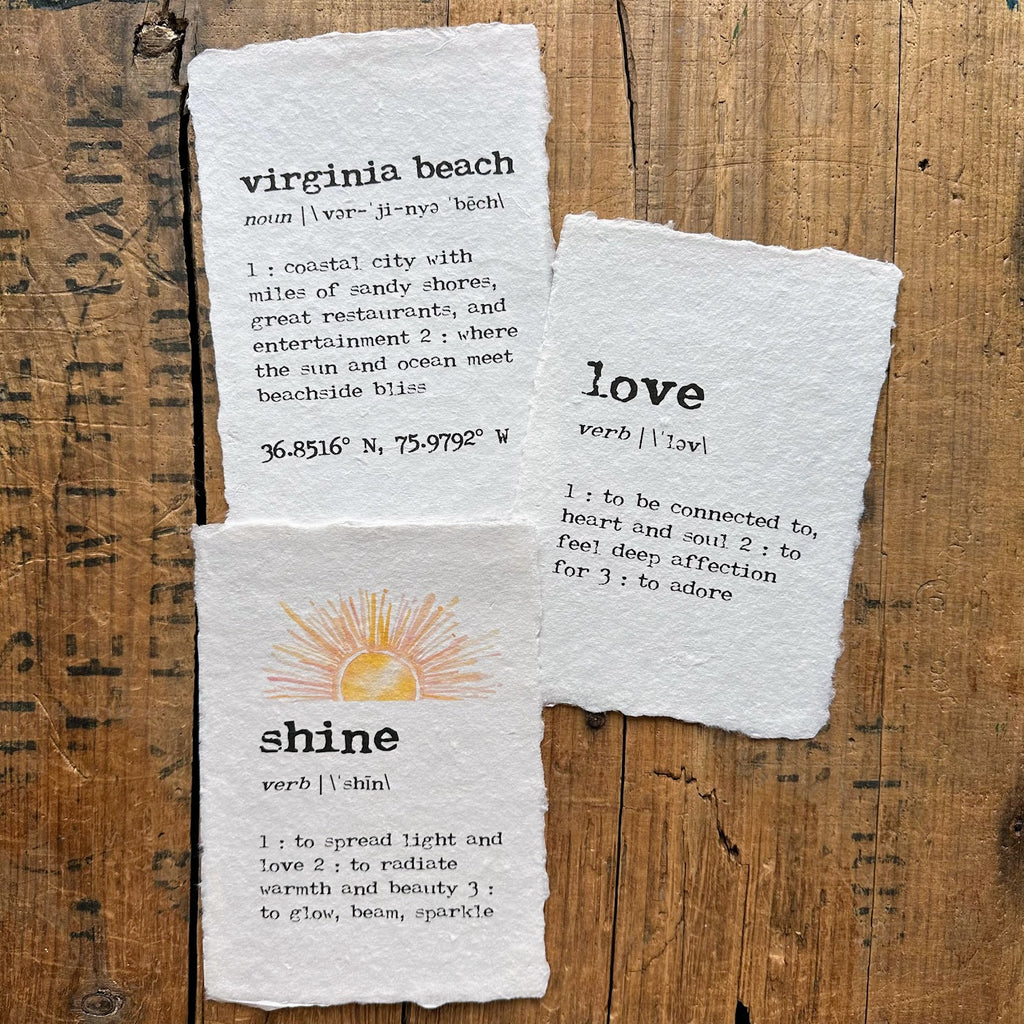 virginia beach
noun | \ vər-ˈji-nyə ˈbēch\
1 : coastal city with
miles of sandy shores,
great restaurants, and
entertainment 2 : where
the sun and ocean meet
beachside bliss
36.8516° N, 75.9792° W
love
verb | \ˈləv\
1 : to be connected to,
heart and soul 2 : to
feel deep affection
for 3 : to adore
shine
verb | \ˈshīn\
1 : to spread light and
love 2 : to radiate
warmth and beauty 3 :
to glow, beam, sparkle